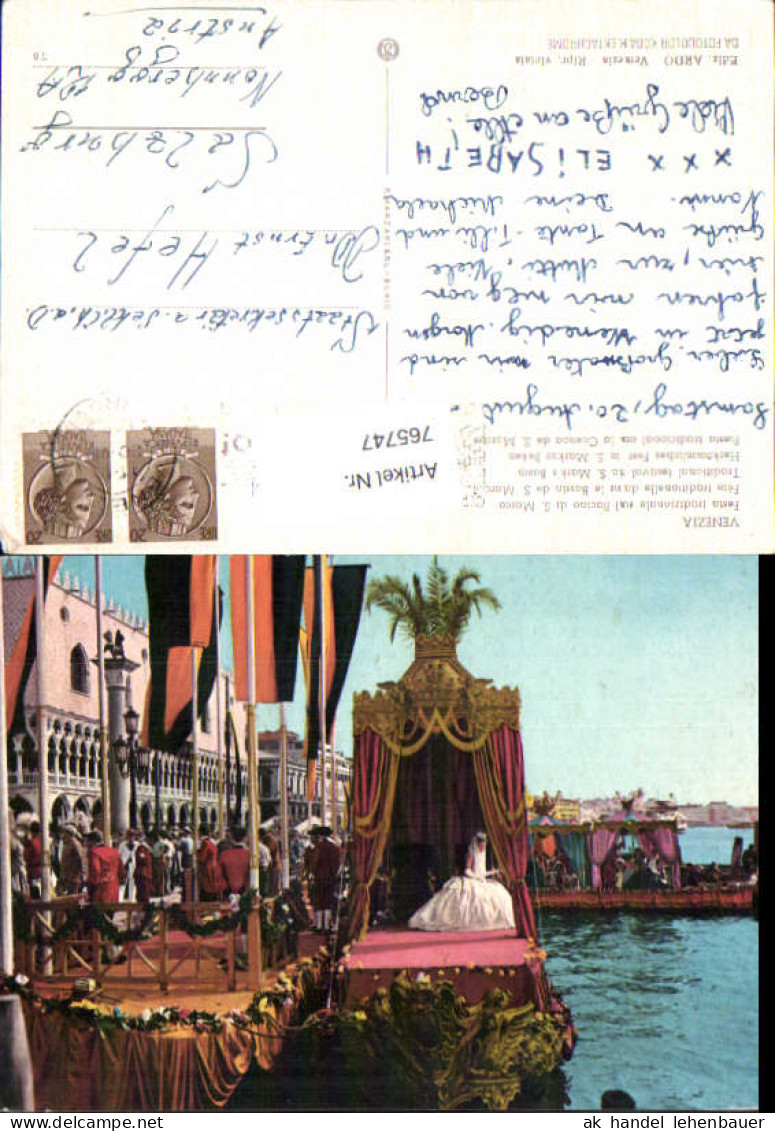 VENEZIA
Festa tradizionale sul Bacino di S. Marco
Fête traditionelle dans le Bassin de S. Marc
Traditional festival in S. Mark's Basin
Herkömmliches Fest im S. Markus Beken
Fiesta tradicional en la Cuenca de S. Marcos
Artikel Nr.
765747
Samstag, 20. August
Lieber Großvater wir sind
jetzt in Venedig. Morgen
fahren wir weg von
hier, zur Mutti. Viele
Grüße an Tante Tilli und
Nanni. Deine Michaela
x x x ELISABETH
Viele Grüße an alle!
Bernd
Ediz. ARDO Venezia Ripr. vietata
DA FOTOCOLOR KODAK EKTACHROME
Staatssekretär a. D.
Dr. Ernst Hefel
Salzburg
Nonnberg
Austria
ak handel lehenbauer